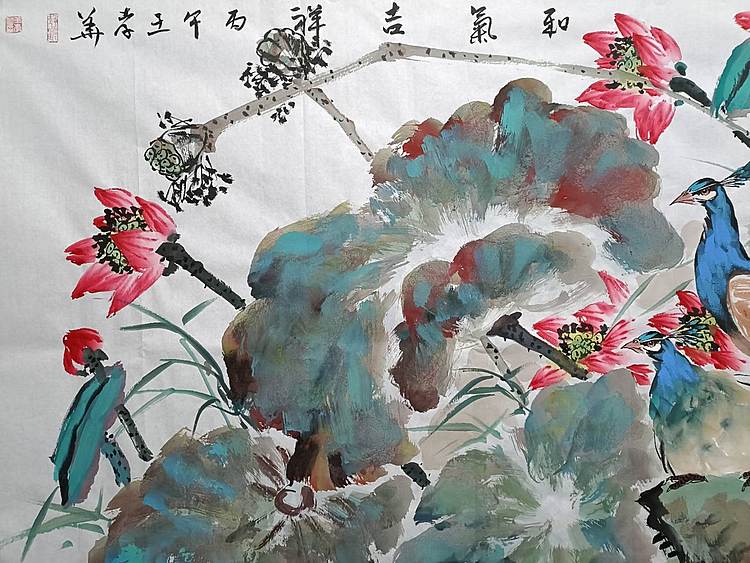 和氣吉祥丙午王孝華